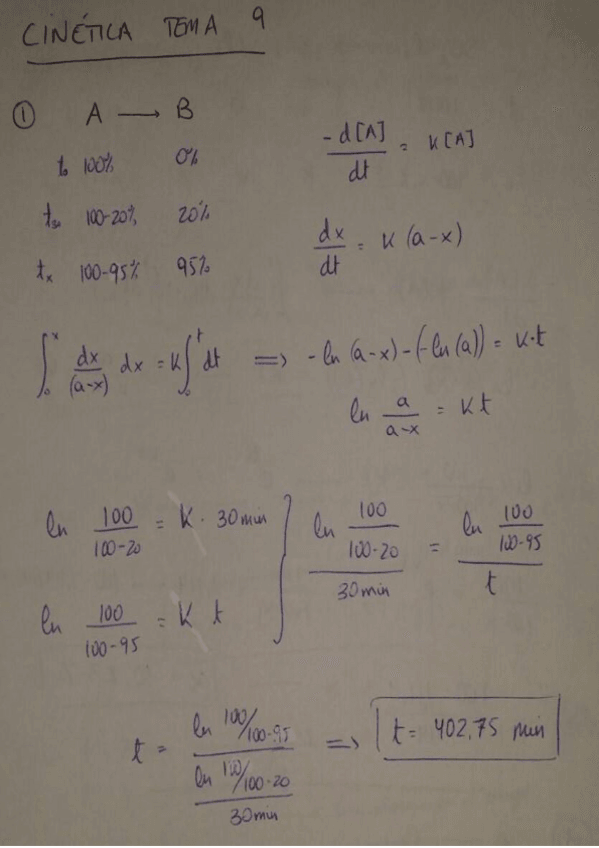 CINÉTICA TEMA 9
① A → B
t₀ 100% 0%
t₃₀ 100-20% 20%
tₓ 100-95% 95%
-d[A]/dt = K[A]
dx/dt = K (a-x)
∫₀ˣ dx/(a-x) dx = K∫₀ᵗ dt ⟹ -ln (a-x) - (-ln (a)) = K·t
ln a/a-x = K t
ln 100/100-20 = K · 30 min
ln 100/100-95 = K t
ln 100/100-20 / 30 min = ln 100/100-95 / t
t = ln 100/100-95 / ln 100/100-20 / 30 min ⟹ t = 402,75 min